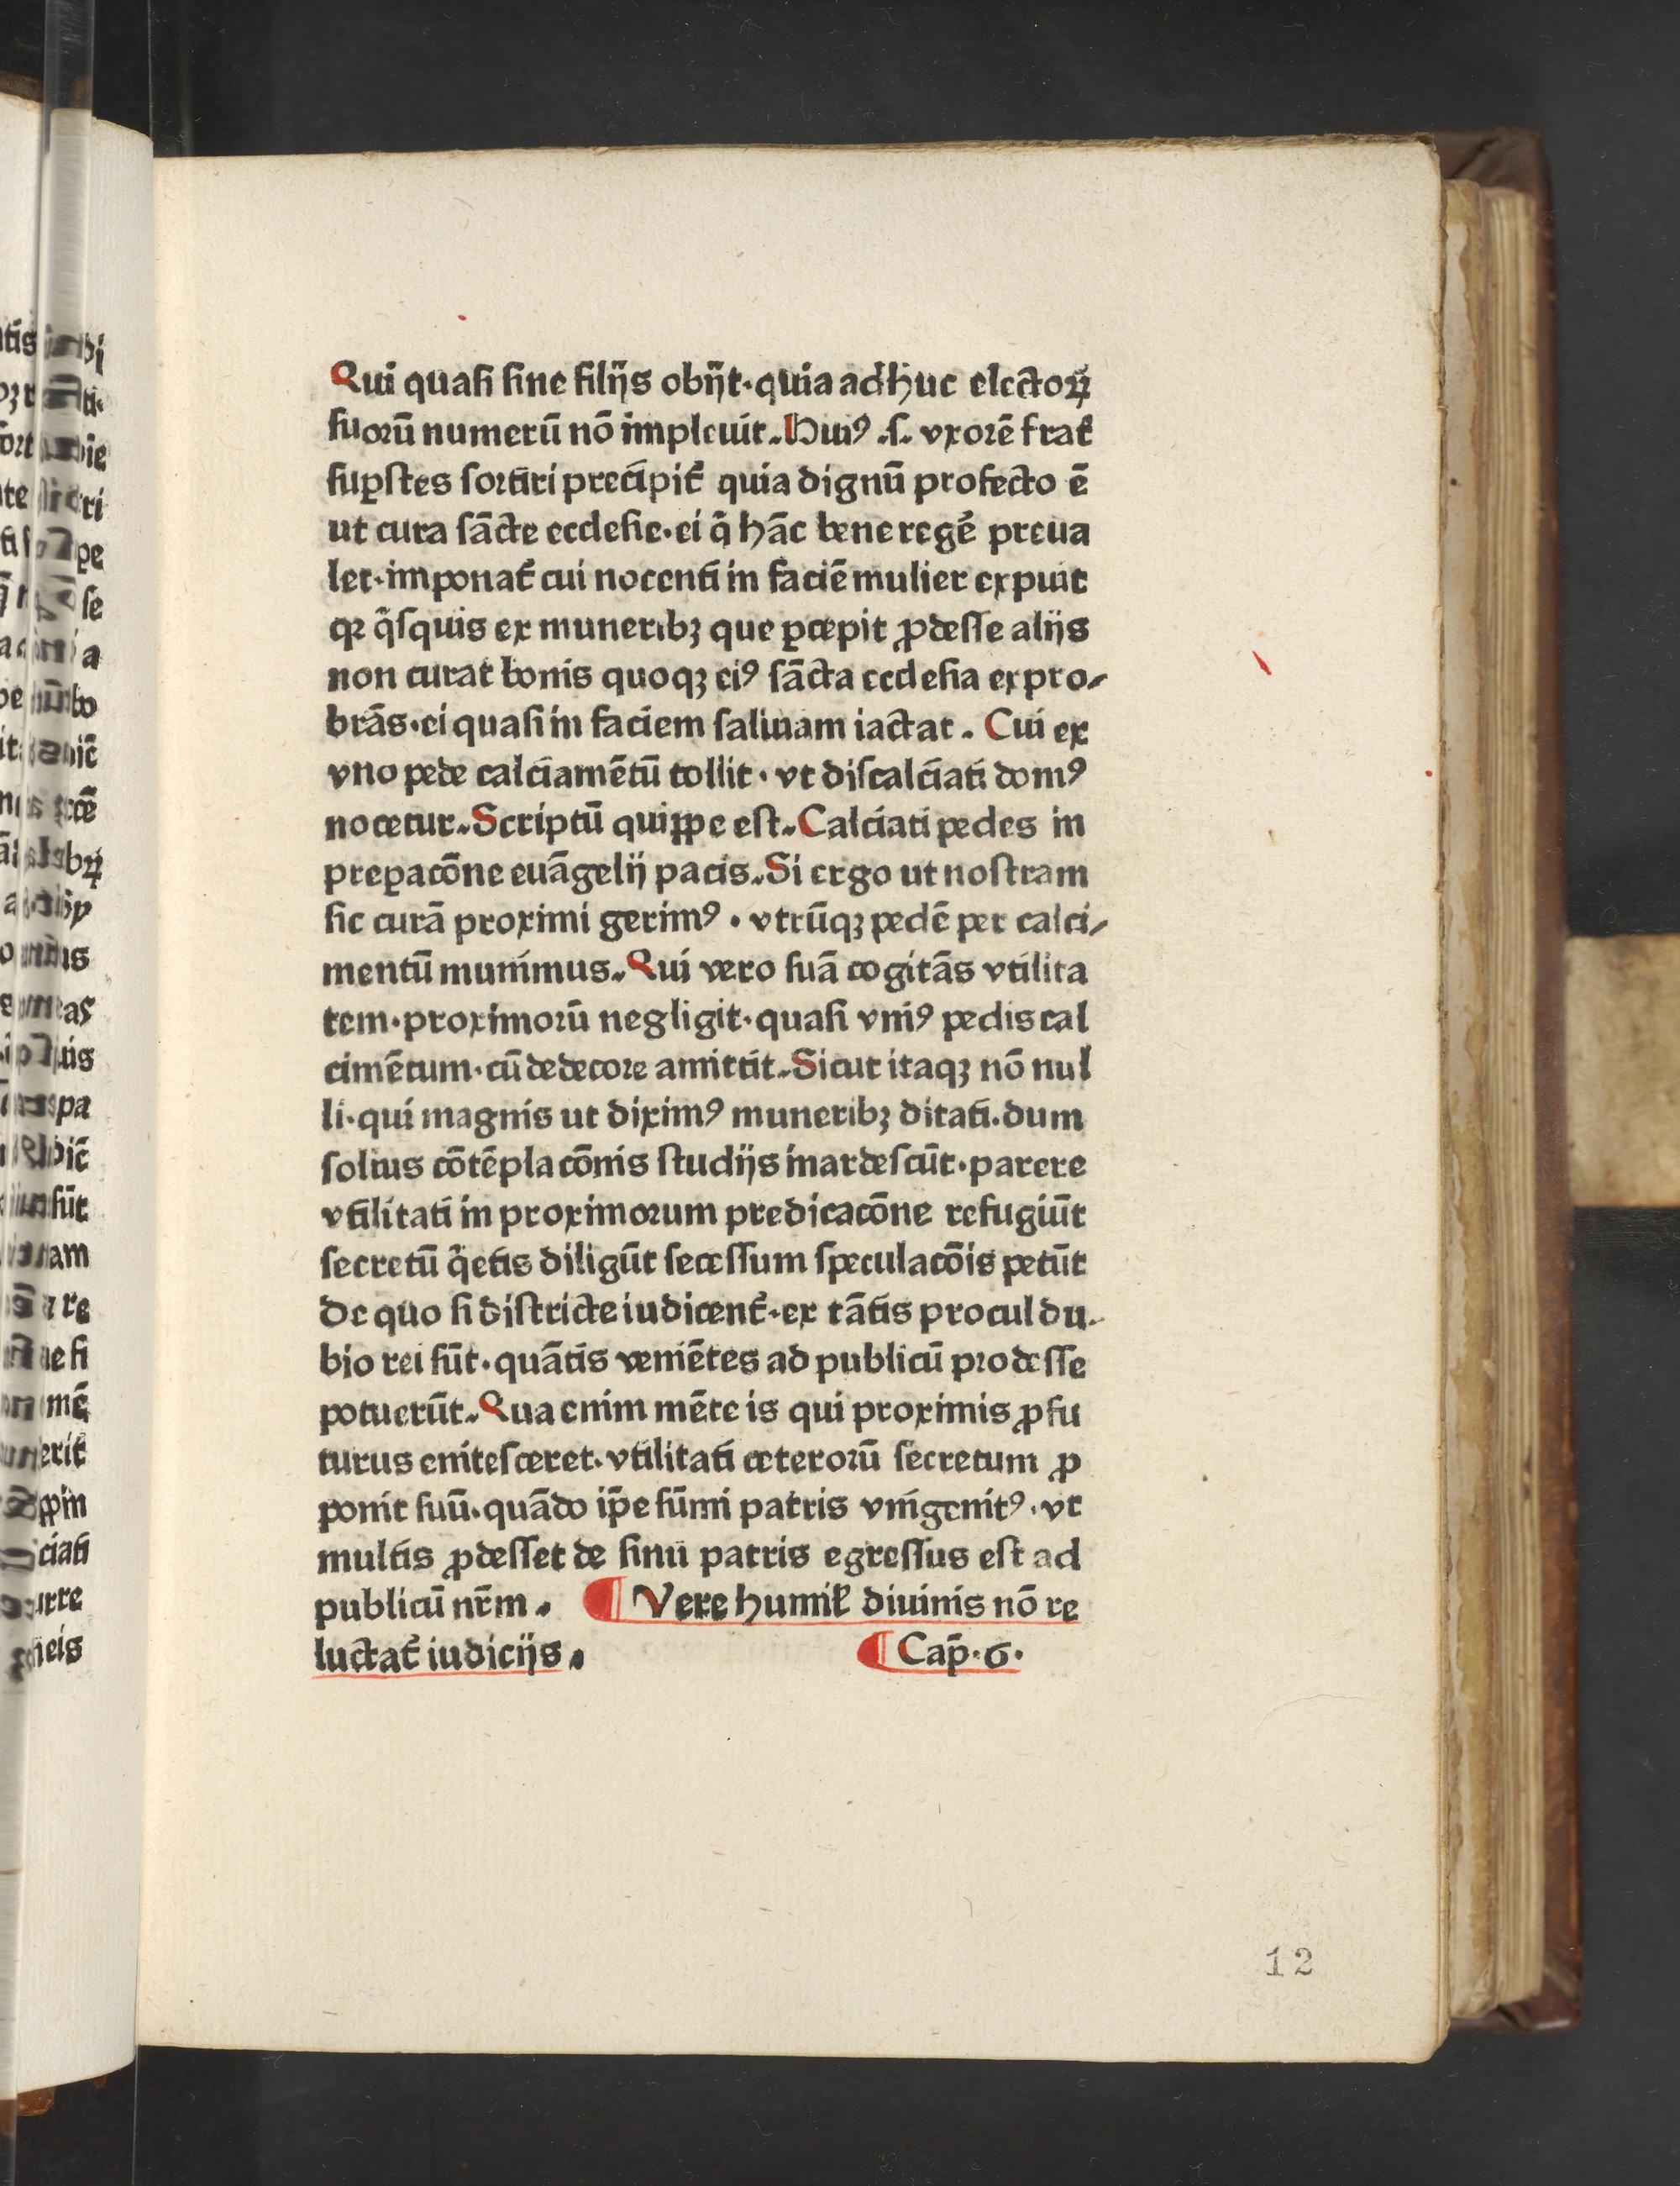 Qui quaſi ſine filijs obijt·quia adhuc electoꝝ
ſuorū numerū nō impleuit.Huiꝰ .ſ. vxorē frat᷑
ſuꝑſtes ſortiri precipit᷑ quia dignū profecto ē
ut cura ſācte eccleſie·ei q̄ hāc bene regē preua
let·imponat᷑ cui nocenti in faciē mulier expuit
qꝛ q̄ſquis ex muneribꝫ que ꝑcepit ꝓdeſſe alijs
non curat bonis quoqꝫ eiꝰ ſācta eccleſia expro⸗
brās·ei quaſi in faciem ſaliuam iactat. Cui ex
vno pede calciamētū tollit·vt diſcalciati domꝰ
nocetur.Scriptū quippe eſt.Calciati pedes in
preꝑacōne euāgelij pacis.Si ergo ut noſtram
ſic curā proximi gerimꝰ·vtrūqꝫ pedē per calci⸗
mentū munimus.Qui vero ſuā cogitās vtilita
tem·proximorū negligit·quaſi vniꝰ pedis cal
cimētum·cū dedecore amittit.Sicut itaqꝫ nō nul
li·qui magnis ut diximꝰ muneribꝫ ditati·dum
ſolius cōtēplacōnis ſtudijs inardeſcūt·parere
vtilitati in proximorum predicacōne refugiūt
ſecretū q̄etis diligūt ſeceſſum ſpeculacōis petūt
De quo ſi diſtricte iudicent᷑·ex tātis procul du.
bio rei ſūt·quātis veniētes ad publicū prodeſſe
potuerūt.Qua enim mēte is qui proximis ꝓfu
turus eniteſceret·vtilitati ceterorū ſecretum ꝓ
ponit ſuū·quādo ip̄e ſūmi patris vnigenitꝰ·vt
multis ꝓdeſſet de ſinu patris egreſſus eſt ad
publicū nr̄m. ¶ Vere humil᷑ diuinis nō re
luctat᷑ iudicijs. ¶ Cap̄·6·
12